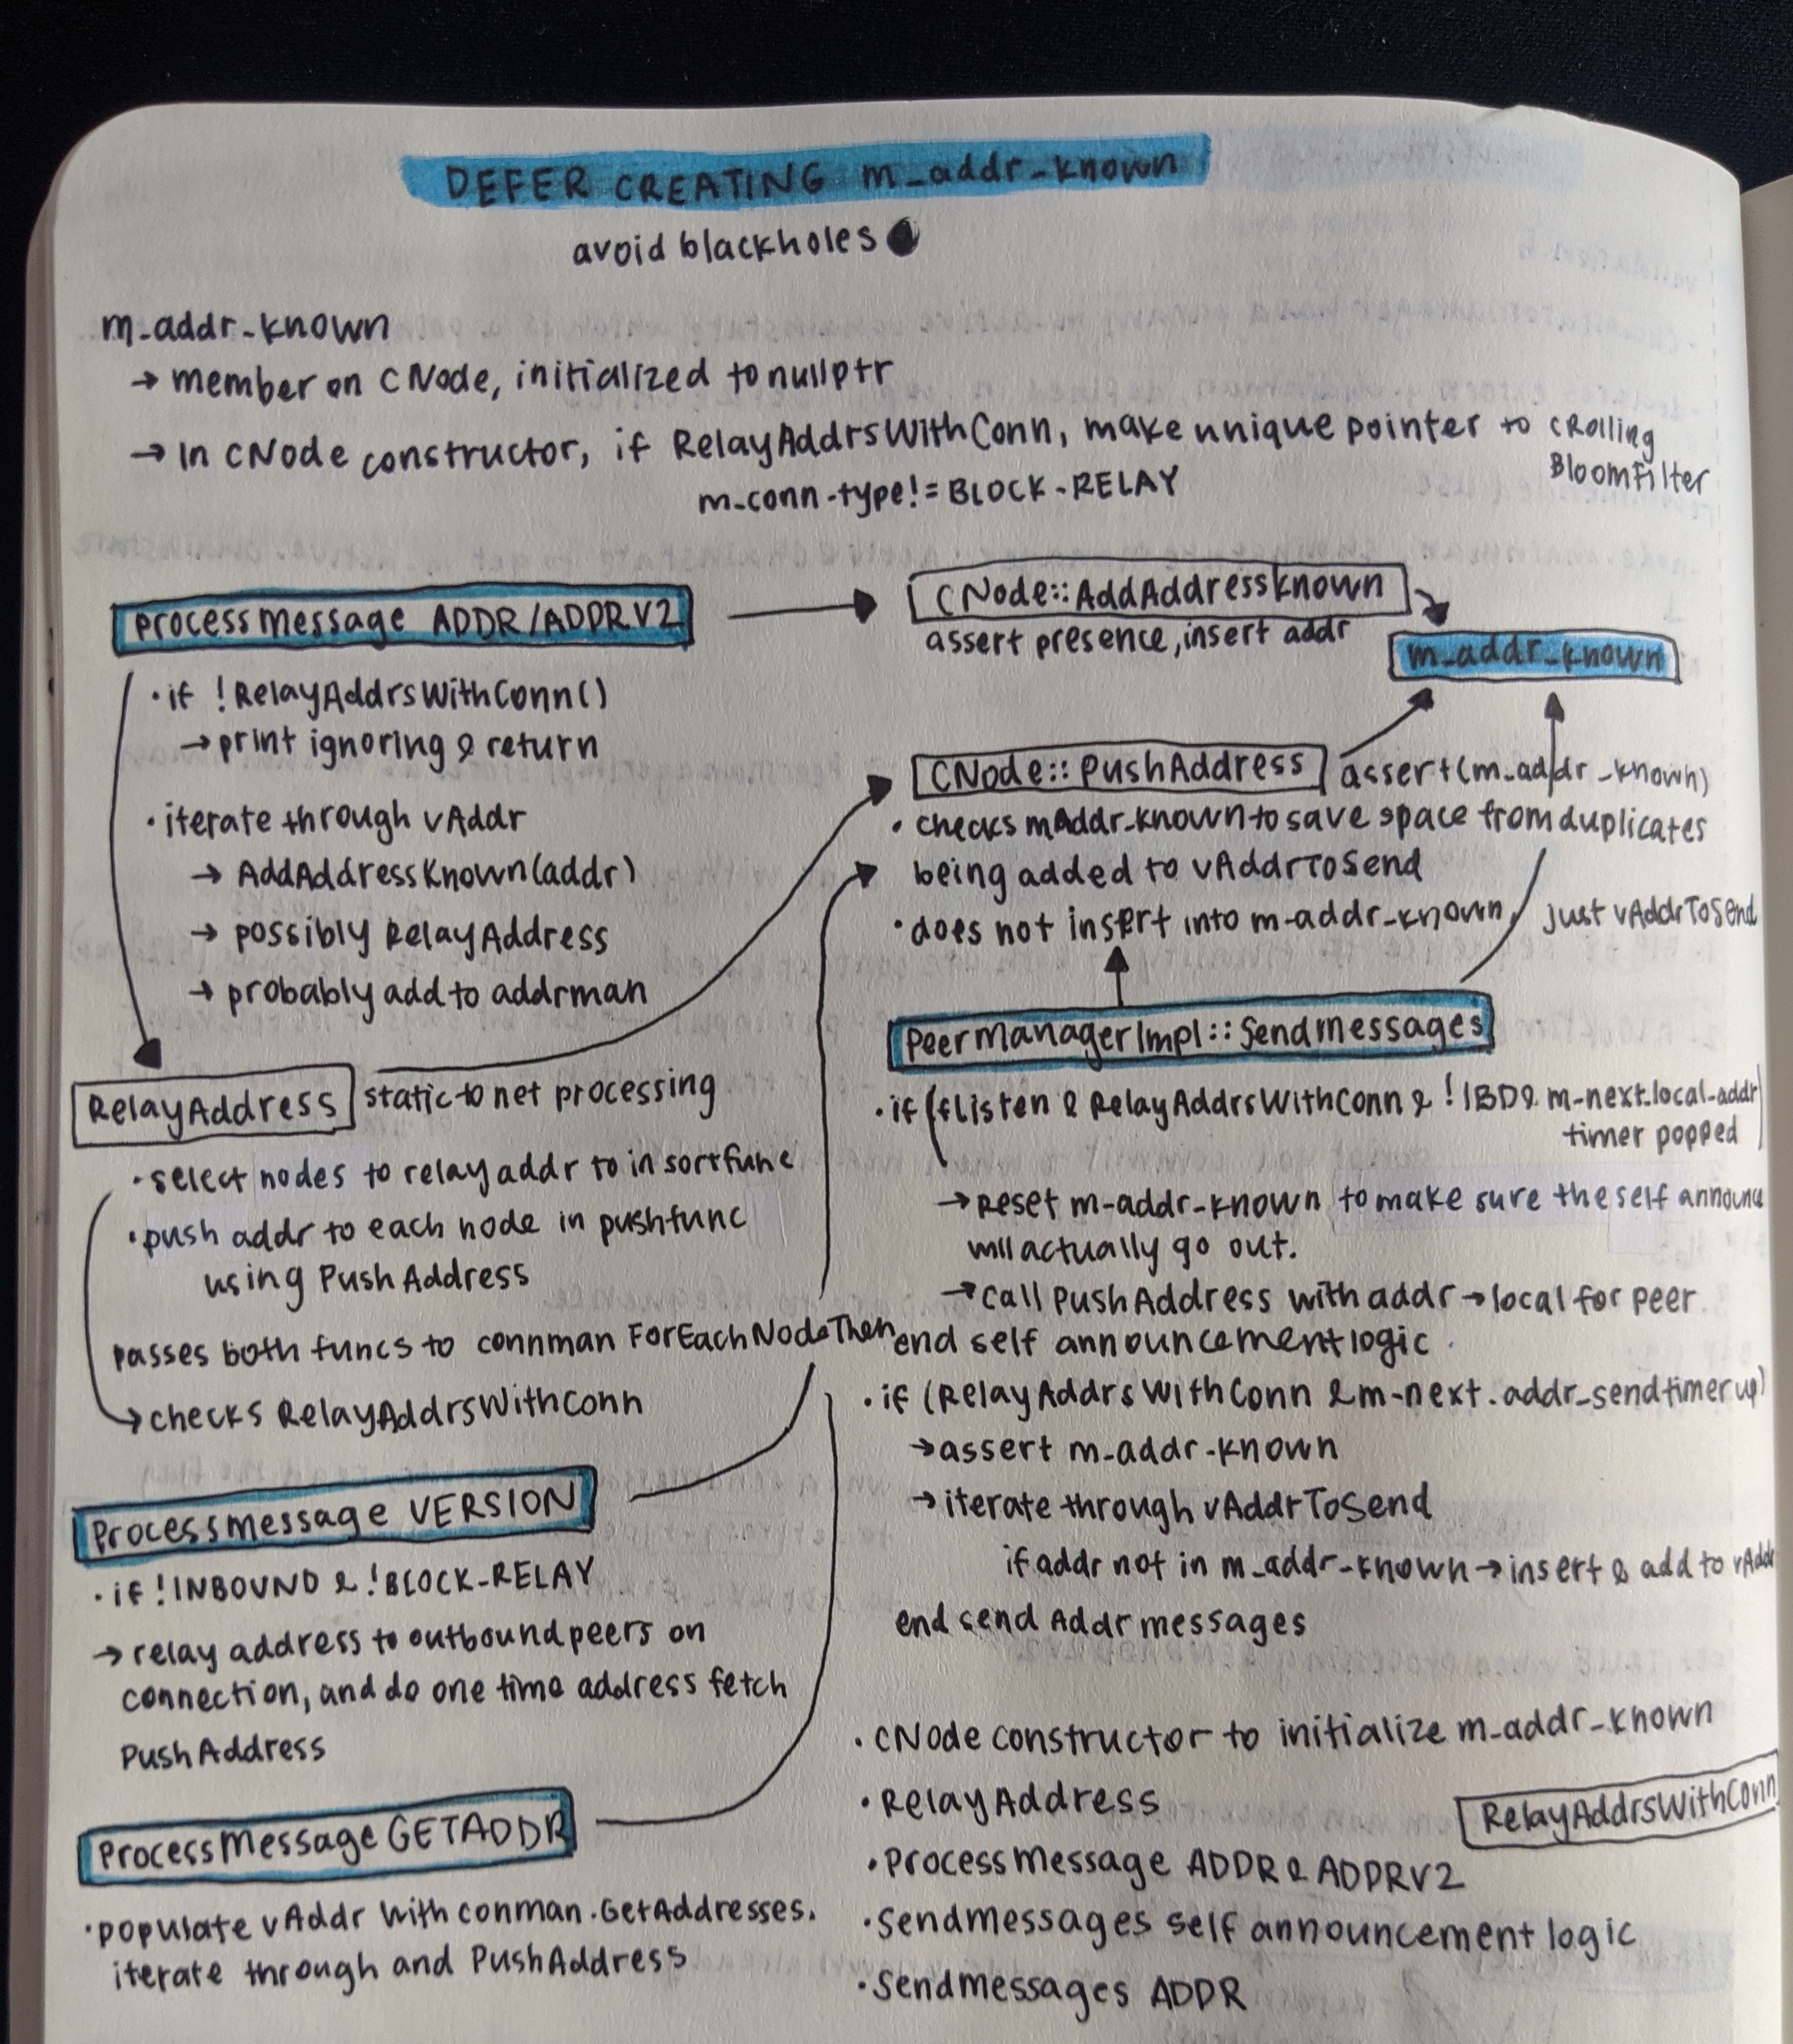 DEFER CREATING m_addr_known
avoid blackholes
m_addr_known
→ member on CNode, initialized to nullptr
→ In CNode constructor, if RelayAddrsWithConn, make unique pointer to CRolling
BloomFilter
m_conn_type != BLOCK-RELAY
ProcessMessage ADDR/ADDRV2
• if !RelayAddrsWithConn()
→ print ignoring & return
• iterate through vAddr
→ AddAddressKnown(addr)
→ possibly RelayAddress
→ probably add to addrman
RelayAddress static to net processing
• select nodes to relay addr to in sortfunc
• push addr to each node in pushfunc
using PushAddress
passes both funcs to connman ForEachNodeThen
→ checks RelayAddrsWithConn
ProcessMessage VERSION
• if !INBOUND & !BLOCK-RELAY
→ relay address to outbound peers on
connection, and do one time address fetch
PushAddress
ProcessMessage GETADDR
• populate vAddr with conman.GetAddresses.
iterate through and PushAddress
CNode::AddAddressKnown
assert presence, insert addr
m_addr_known
CNode::PushAddress assert(m_addr_known)
• checks m_addr_known to save space from duplicates
being added to vAddrToSend
• does not insert into m_addr_known, just vAddrToSend
PeerManagerImpl::SendMessages
• if (fListen & RelayAddrsWithConn & !IBD & m_next_local_addr
timer popped)
→ reset m_addr_known to make sure the self announce
will actually go out.
→ call PushAddress with addr → local for peer
end self announcement logic
• if (RelayAddrsWithConn & m_next_addr_send timer up)
→ assert m_addr_known
→ iterate through vAddrToSend
if addr not in m_addr_known → insert & add to vAddr
end send Addr messages
• CNode constructor to initialize m_addr_known
• RelayAddress
RelayAddrsWithConn
• ProcessMessage ADDR & ADDRV2
• SendMessages self announcement logic
• SendMessages ADDR